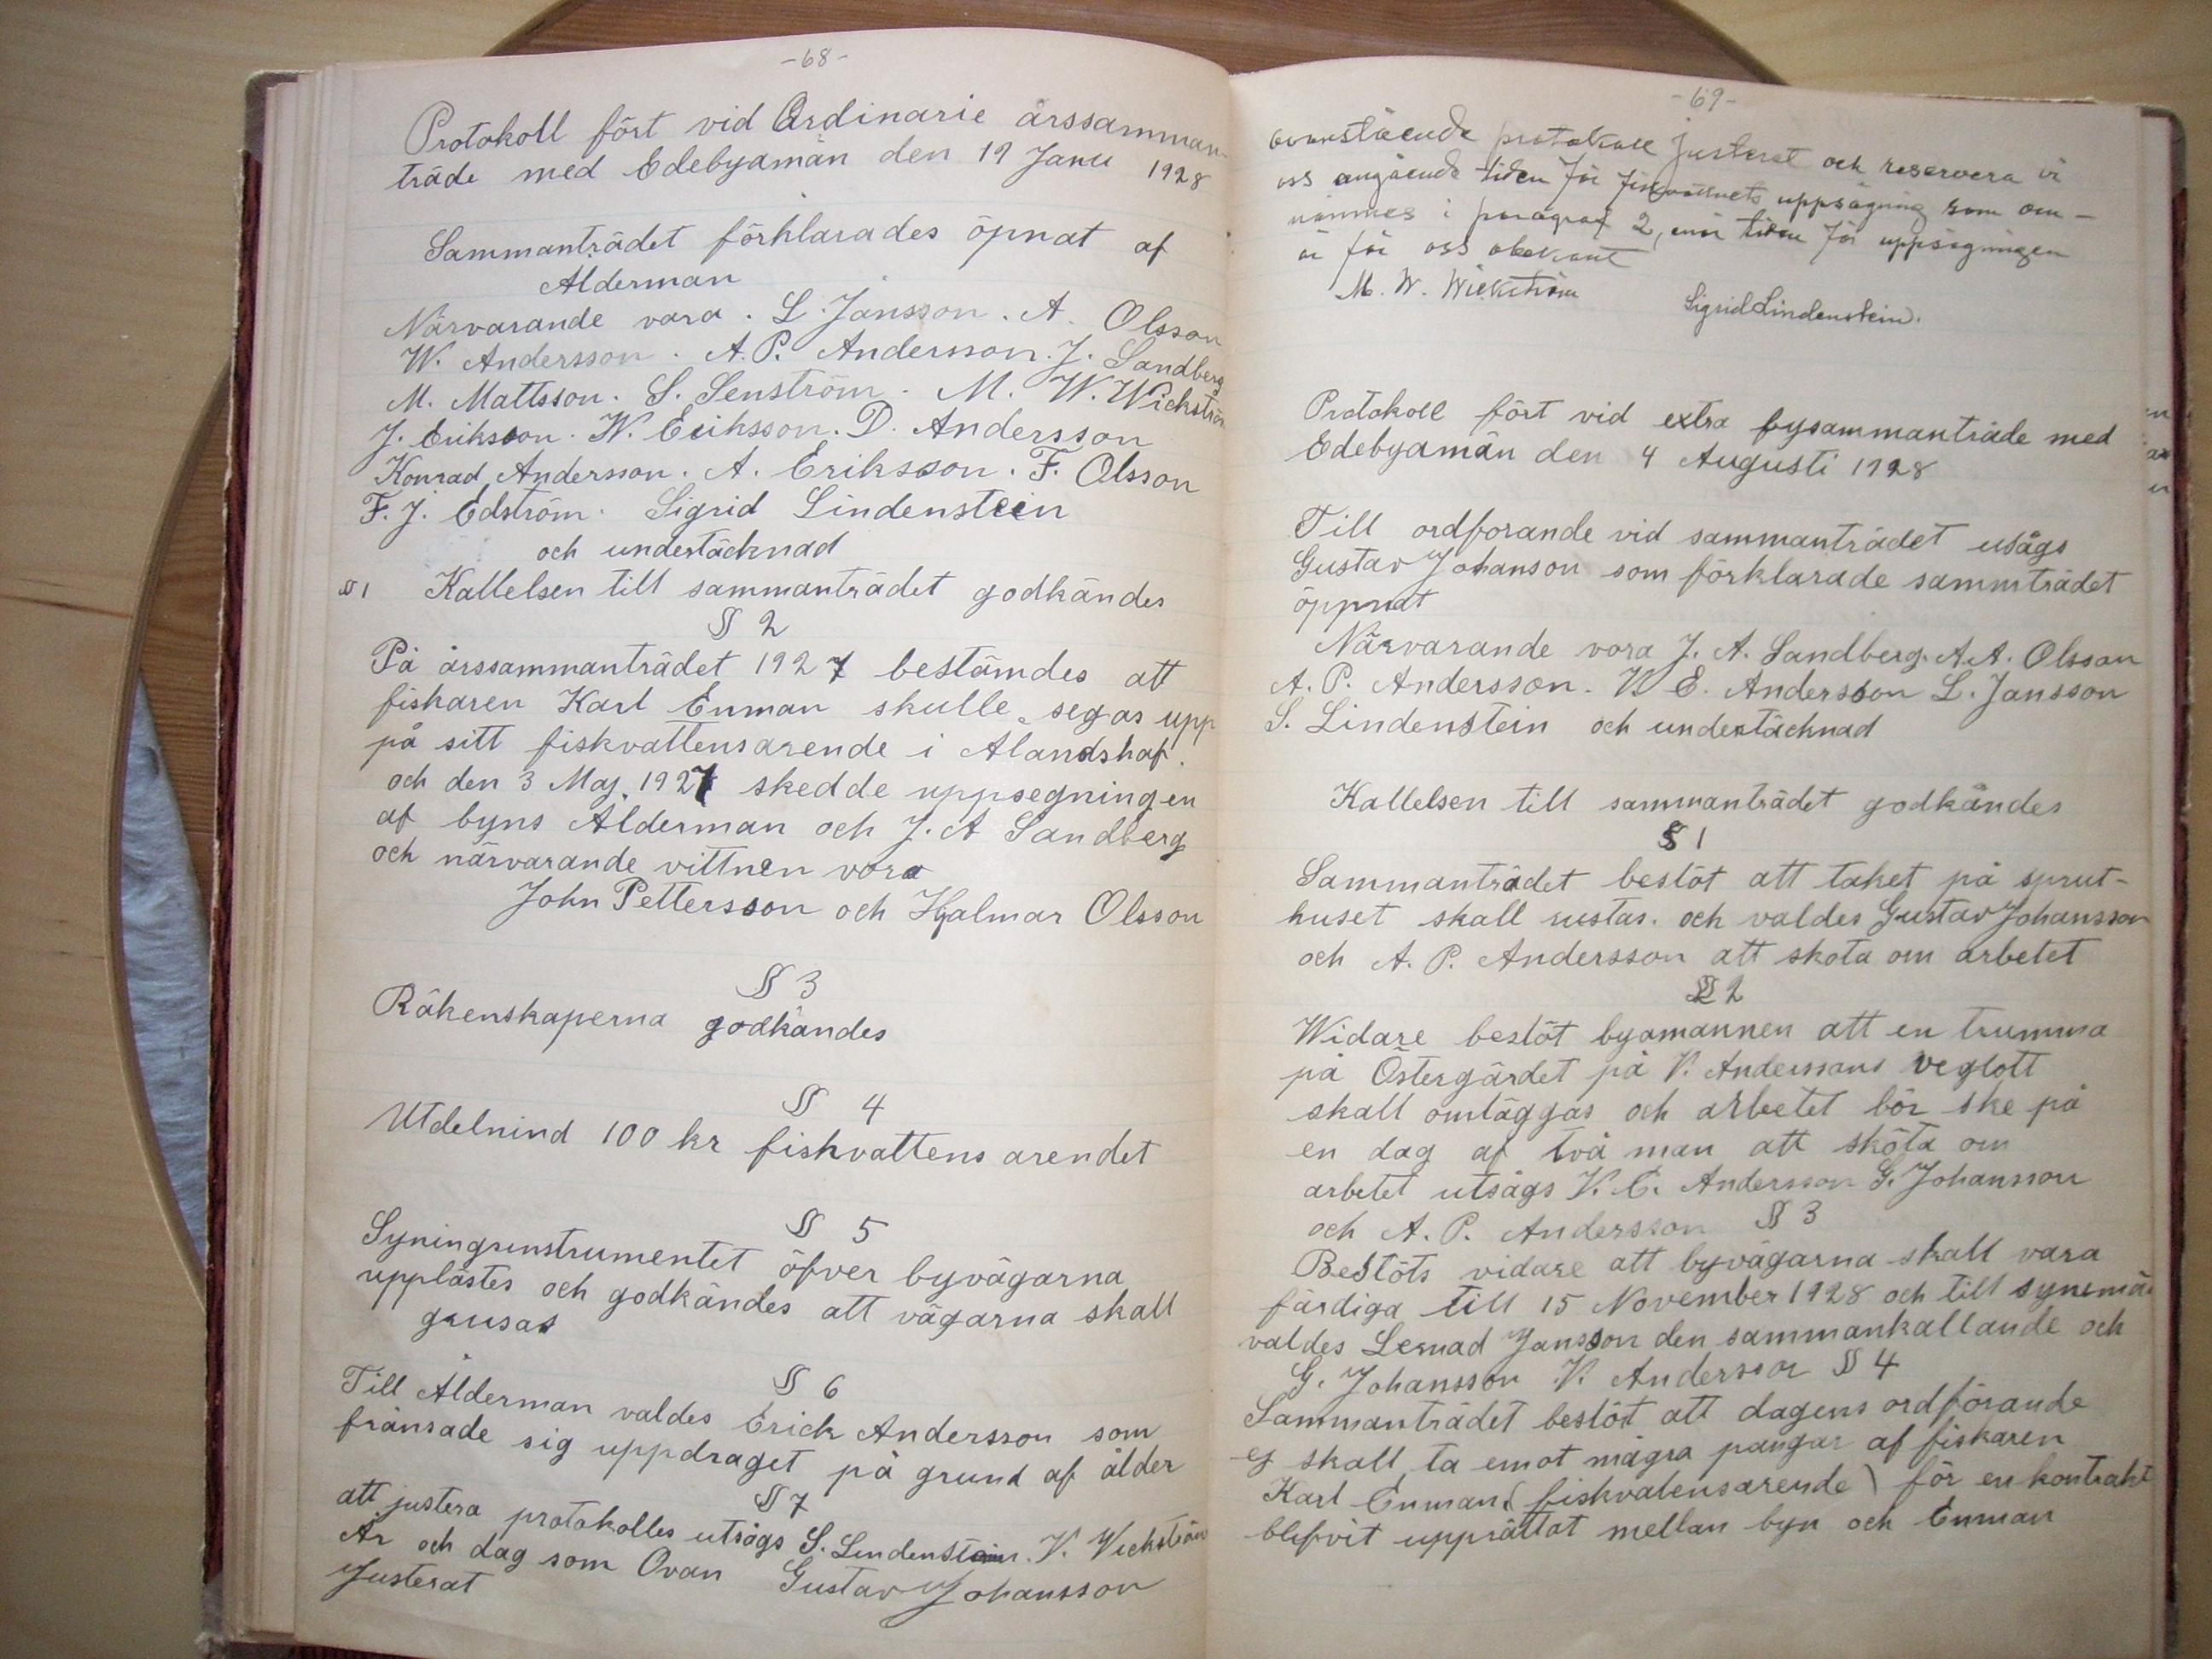 -68-
Protokoll fört vid Ordinarie årssamman
träde med Edebyamän den 19 Janu 1928
Sammanträdet förklarades öpnat af
Ålderman
Närvarande vara. L. Jansson. A. Olsson
W. Andersson. A. P. Andersson. J. Sandberg
M. Mattsson. S. Senström. M. W. Wickström
J. Eriksson. W. Eriksson. D. Andersson
Konrad Andersson. A. Eriksson. F. Olsson
F. J. Edström. Sigrid Lindenstein
och undertäcknad
§ 1 Kallelsen till sammanträdet godkändes
§ 2
På årssammanträdet 1927 bestämdes att
fiskaren Karl Enman skulle segas upp
på sitt fiskvattensarende i Alandshaf.
och den 3 Maj. 1927 skedde uppsegningen
af byns Ålderman och J. A Sandberg
och närvarande vittnen vora
John Pettersson och Hjalmar Olsson
§ 3
Räkenskaperna godkändes
§ 4
Utdelnind 100 kr fiskvattens arendet
§ 5
Syningsinstrumentet öfver byvägarna
upplästes och godkändes att vägarna skall
grusas
§ 6
Till Ålderman valdes Erick Andersson som
frånsade sig uppdraget på grund af ålder
§ 7
att justera protokolles utsågs S. Lindenstein. V. Wickström
År och dag som Ovan Gustav Johansson
Justerat
-69-
ovanstående protokoll justerat och reservera vi
oss angående tiden för fiskvattnets uppsägning som om-
nämnes i paragraf 2, enär tiden för uppsägningen
är för oss obekant
M. W. Wickström
Sigrid Lindenstein.
Protokoll fört vid extra bysammanträde med
Edebyamän den 4 Augusti 1928
Till ordforande vid sammanträdet usågs
Gustav Johanson som förklarade sammträdet
öppnat
Närvarande vora J. A. Sandberg. A. A. Olsson
A. P. Andersson. V. E. Andersson L. Jansson
S. Lindenstein och undertäcknad
Kallelsen till sammanträdet godkändes
§ 1
Sammanträdet beslöt att taket på sprut-
huset skall rustas. och valdes Gustav Johansson
och A. P. Andersson att skota om arbetet
§ 2
Widare beslöt byamannen att en trumma
på Östergärdet på V. Anderssons veglott
skall omläggas och arbetet bör ske på
en dag af två man att sköta om
arbetet utsågs V. E. Andersson G. Johansson
och A. P. Andersson § 3
Beslöts vidare att byvägarna skall vara
färdiga till 15 November 1928 och till synemän
valdes Lernad Jansson den sammankallande och
G. Johansson V. Andersson § 4
Sammanträdet beslöt att dagens ordförande
ej skall ta emot några pangar af fiskaren
Karl Enman ( fiskvatensarende ) för en kontrakt
blifvit upprättat mellan byn och Enman